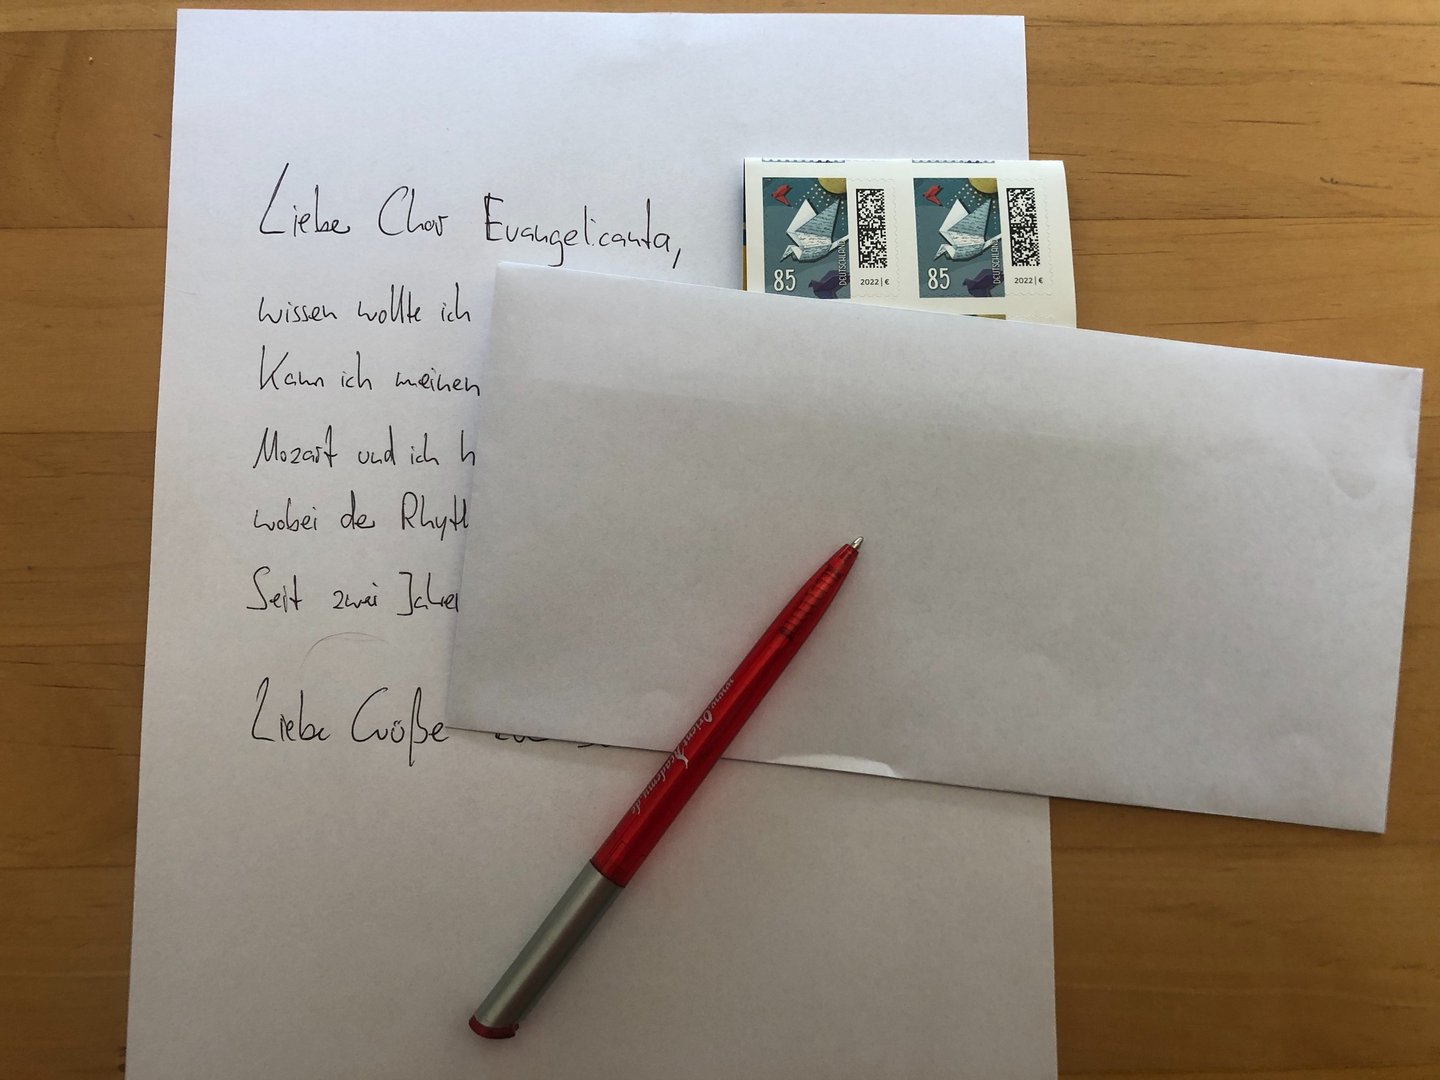 Liebe Chor Evangelicanta,
wissen wollte ich
Kann ich meinen
Mozart und ich h
wobei de Rhyth
Seit zwei Jahre
Liebe Grüße
85
DEUTSCHLAND
2022 | €
85
DEUTSCHLAND
2022 | €
www.OrientAcademy.de